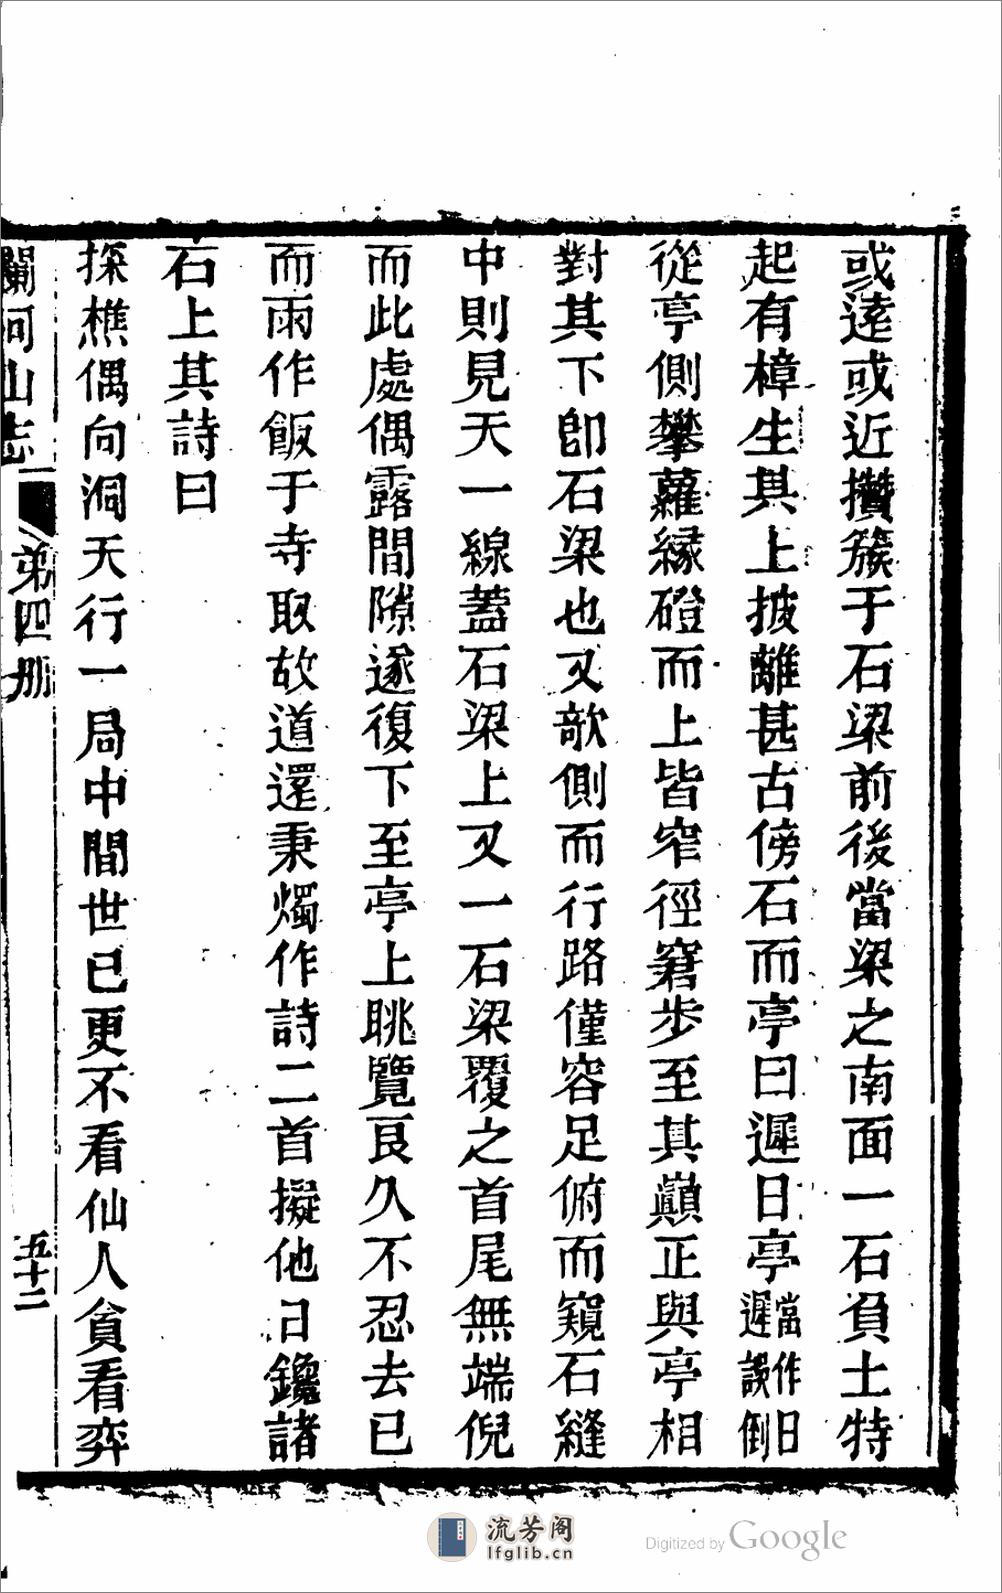 或遠或近攢簇于石梁前後當梁之南面一石負土特
起有樟生其上披離甚古傍石而亭曰遲日亭當作日遲誤倒
從亭側攀蘿緣磴而上皆窄徑窘步至其巔正與亭相
對其下卽石梁也又欹側而行路僅容足俯而窺石縫
中則見天一線蓋石梁上又一石梁覆之首尾無端倪
而此處偶露間隙遂復下至亭上眺覽良久不忍去已
而雨作飯于寺取故道還秉燭作詩二首擬他日鑱諸
石上其詩曰
探樵偶向洞天行一局中間世已更不看仙人貪看弈
爛柯山志
第四册
五十二
流芳阁
lfglib.cn
Digitized by Google